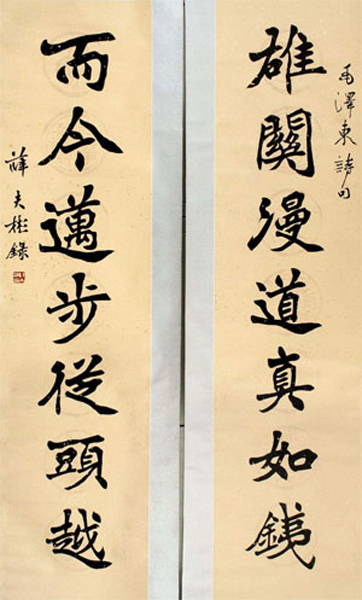 毛澤東詩句
雄關漫道真如鐵
而今邁步從頭越
薛夫彬錄